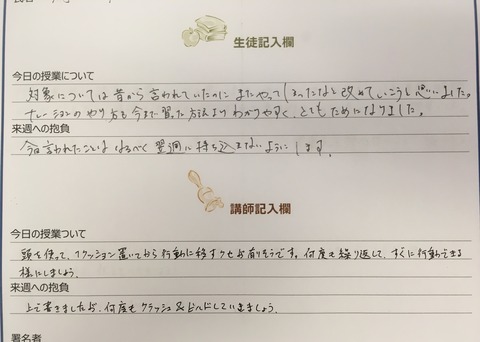 生徒記入欄
今日の授業について
対象については昔から言われていたのにまたやってしまったなと改めていこうと思いました。
ナレーションのやり方も今まで習った方法よりわかりやすく、とてもためになりました。
来週への抱負
今日言われたことはなるべく翌週に持ち込まないようにします。
講師記入欄
今日の授業ついて
頭を使って、1クッション置いてから行動に移すクセが有りそうです。何度も繰り返して、すぐに行動できる
様にしましょう。
来週への抱負
上で書きましたが、何度もクラッシュ&ビルドしていきましょう。
署名者